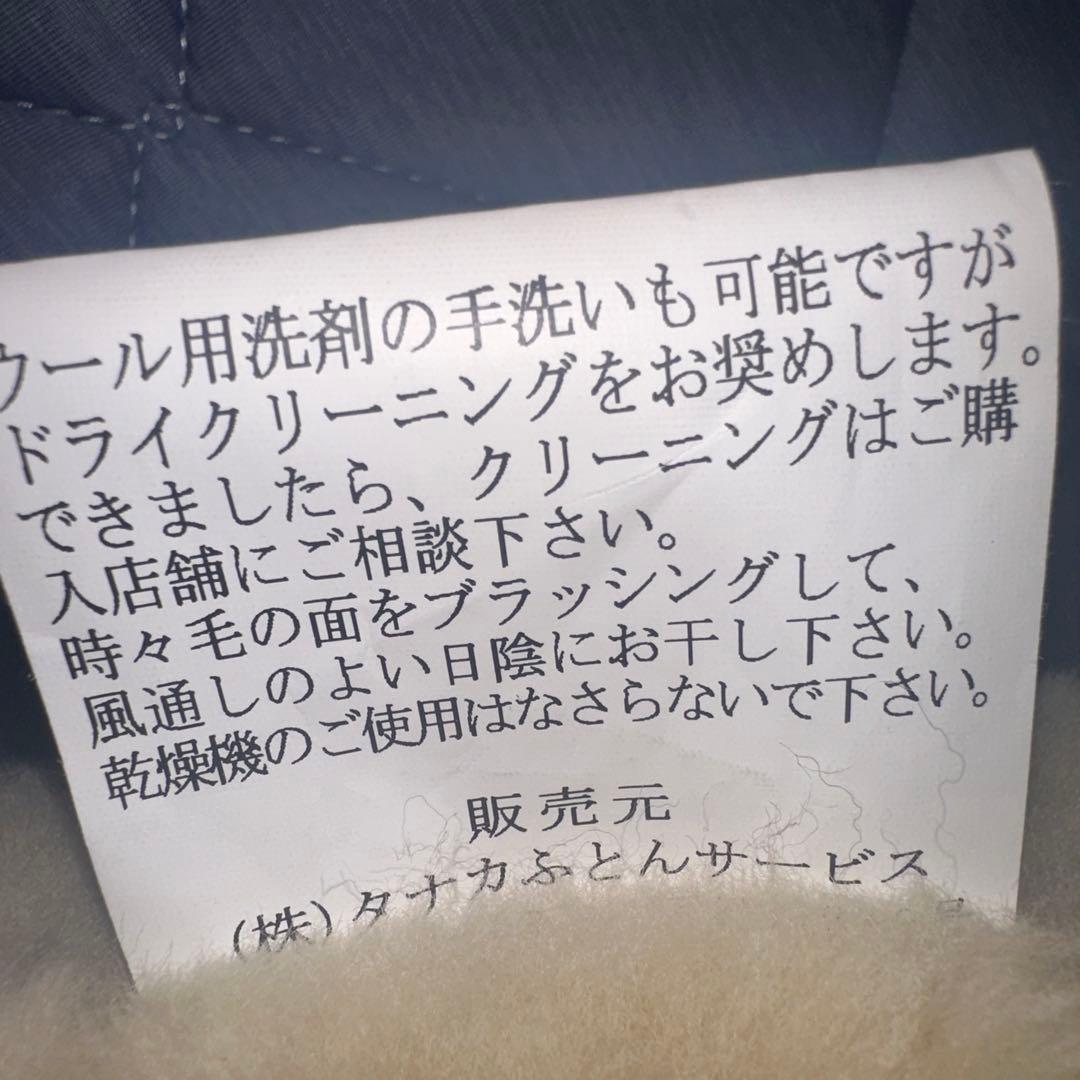 ウール用洗剤の手洗いも可能ですが
ドライクリーニングをお奨めします。
できましたら、クリーニングはご購
入店舗にご相談下さい。
時々毛の面をブラッシングして、
風通しのよい日陰にお干し下さい。
乾燥機のご使用はなさらないで下さい。
販売元
(株)タナカふとんサービス